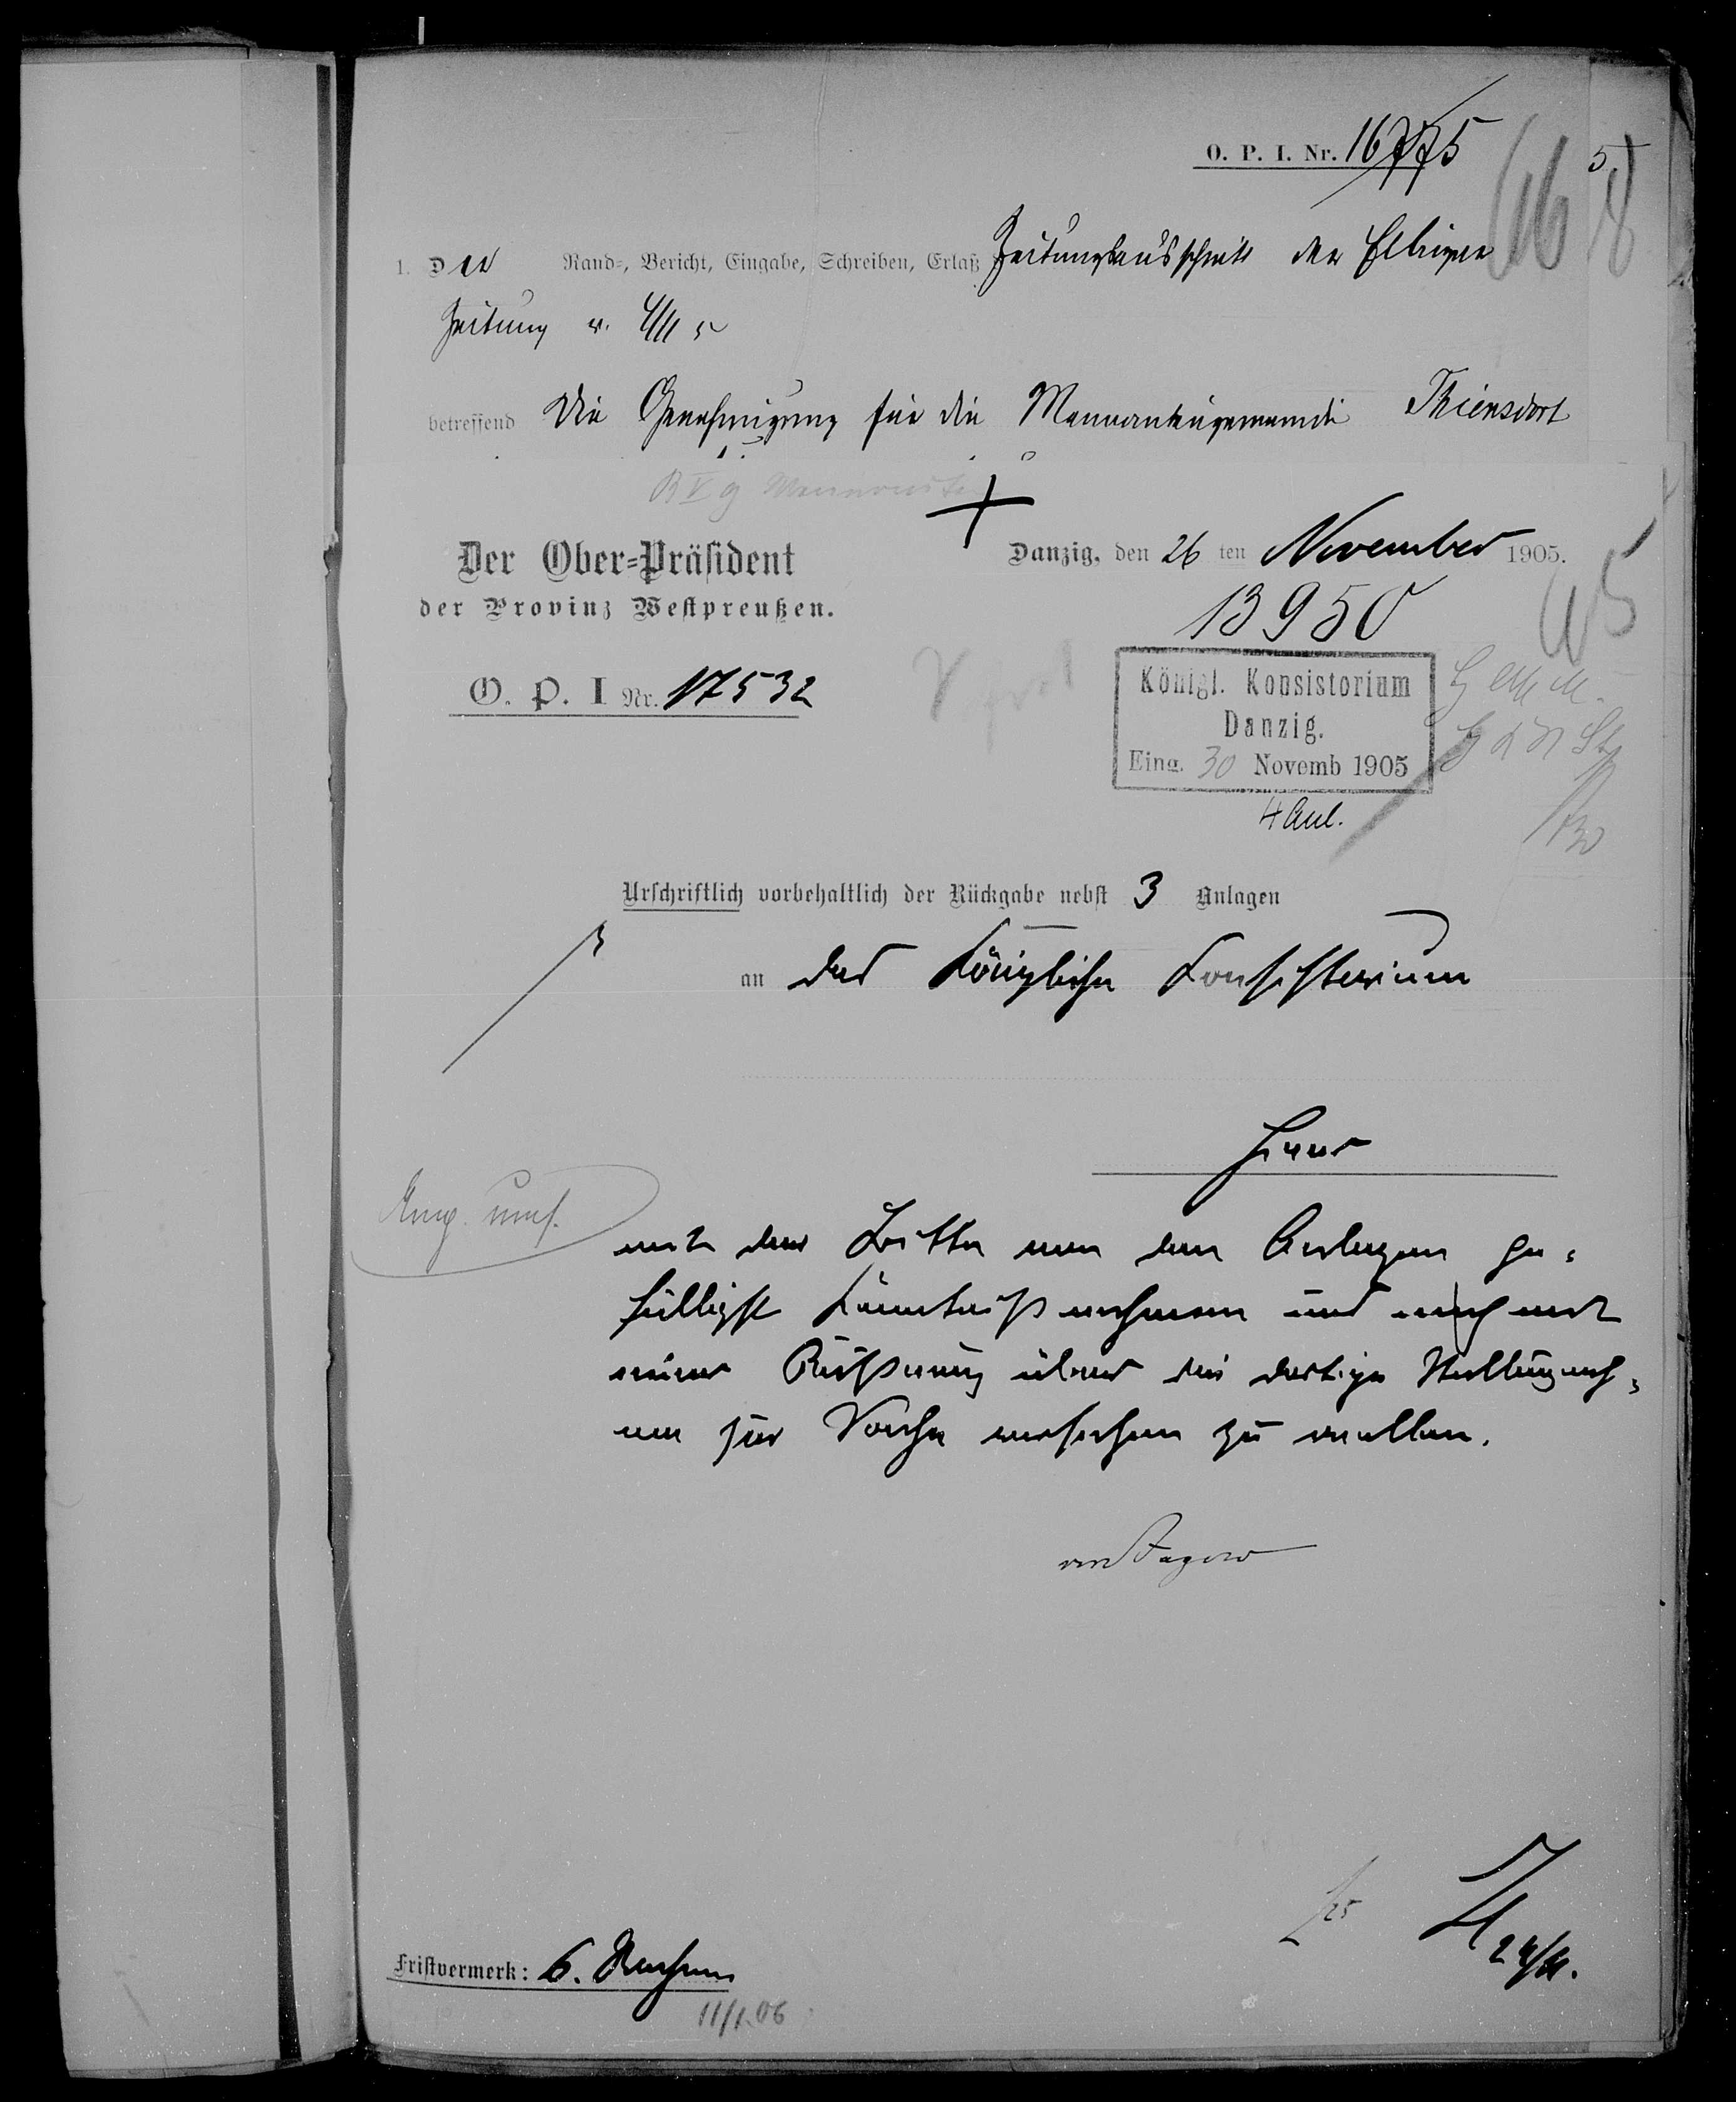 O. P. I. Nr. 16775 5.
1. Der Rand-, Bericht, Eingabe, Schreiben, Erlaß Zeitungsausschnitt der Elbinger
Zeitung v. 4/11 5
betreffend Die Genehmigung für die Mennonitengemeinde Thiensdorf
Der Ober-Präsident
der Provinz Westpreußen.
O. P. I Nr. 17532
Danzig, den 26 ten November 1905.
13950
Königl. Konsistorium
Danzig.
Eing. 30 Novemb 1905
4 Anl.
Urschriftlich vorbehaltlich der Rückgabe nebst 3 Anlagen
an das Königliche Konsistorium
hier
mit der Bitte von den Anlagen ge-
fälligst Kenntniß nehmen und mich mit
einer Äußerung über die dortige Stellungnah-
me zur Sache versehen zu wollen.
von Jagow
24/11.
Fristvermerk: 6. Wochen
11/1.06